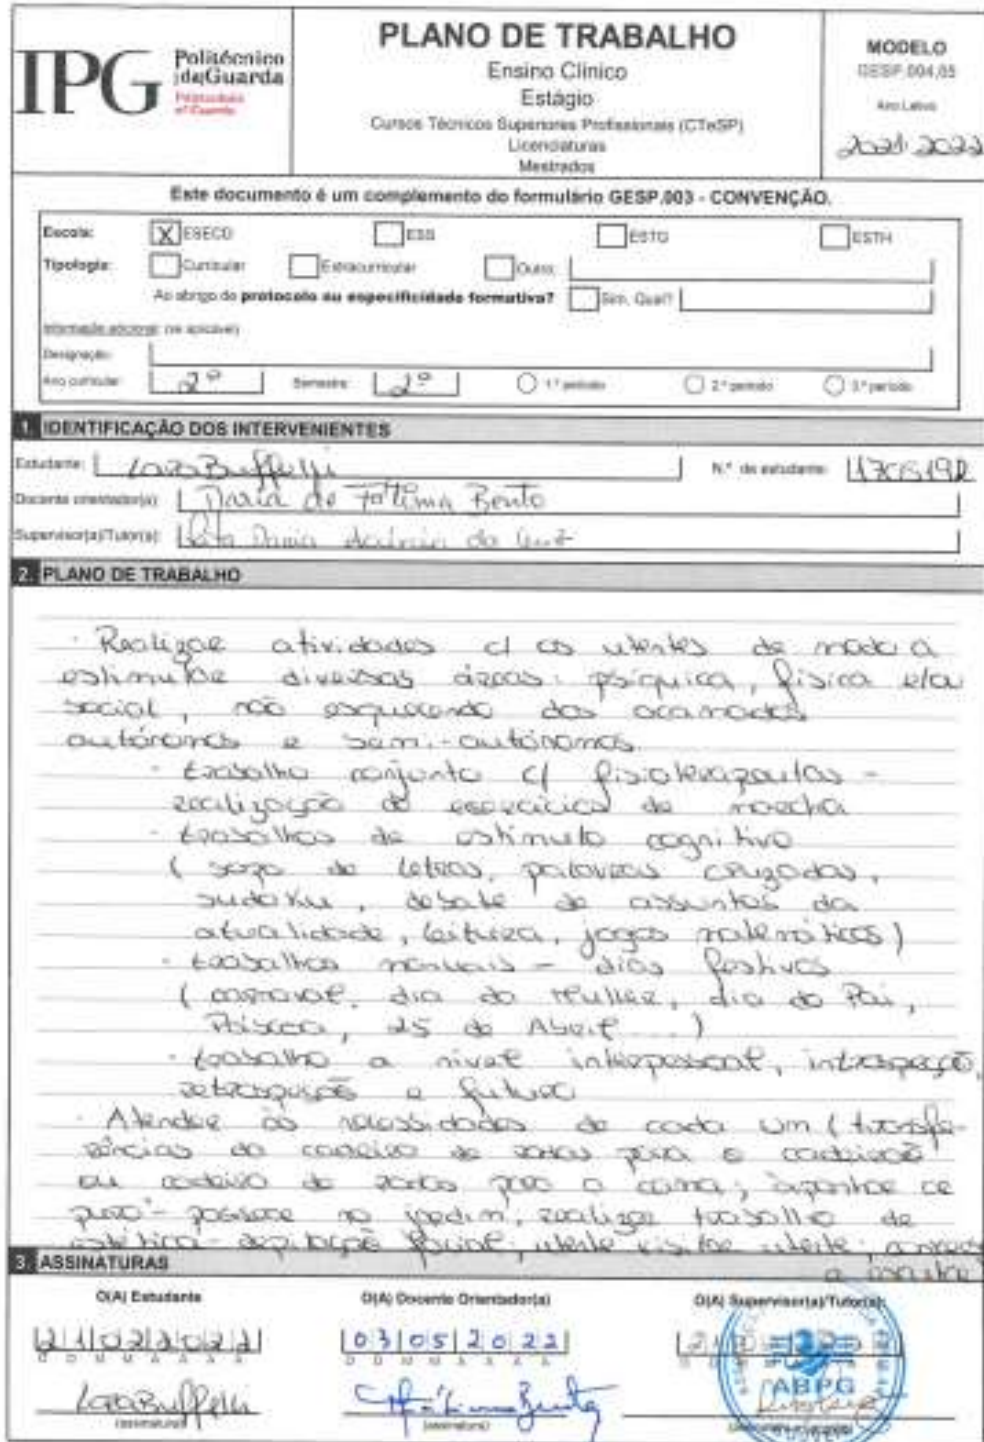 IPG Politécnico da Guarda
Polytechnic of Guarda
PLANO DE TRABALHO
Ensino Clínico
Estágio
Cursos Técnicos Superiores Profissionais (CTeSP)
Licenciaturas
Mestrados
MODELO
GESP.004.05
Ano Letivo
2021 2022
Este documento é um complemento do formulário GESP.003 - CONVENÇÃO.
Escola: X ESECD ESS ESTG ESTH
Tipologia: Curricular Extracurricular Outro:
Ao abrigo de protocolo ou especificidade formativa? Sim. Qual?
Informação adicional (se aplicável)
Designação:
Ano curricular: 2º Semestre: 2º 1.º período 2.º período 3.º período
1. IDENTIFICAÇÃO DOS INTERVENIENTES
Estudante: Lara Buffelli N.º de estudante:
Docente orientador(a): Maria de Fátima Bento
Supervisor(a)/Tutor(a): Maria
2. PLANO DE TRABALHO
· Realizar atividades c/ os utentes de modo a
estimular diversas áreas: psíquica, física e/ou
social, não esquecendo dos acamados
autónomos e semi-autónomos
· trabalho conjunto c/ fisioterapeutas -
realização de exercícios de marcha
· trabalhos de estimulo cognitivo
( sopa de letras, palavras cruzadas,
sudoku, debate de assuntos da
atualidade, leitura, jogos matemáticos)
· trabalhos manuais - dias festivos
( carnaval, dia da Mulher, dia do Pai,
Páscoa, 25 de Abril ...)
· trabalho a nivel interpessoal, introspeção,
retrospeção e futuro
· Atender às necessidades de cada um ( transfe-
rências da cadeira de rodas para o cadeirão
ou cadeira de rodas para a cama; "apanhar ar
puro" - passear no jardim; realizar trabalho de
estética - depilação facial; utente visitar utente;
a
3. ASSINATURAS
O(A) Estudante O(A) Docente Orientador(a) O(A) Supervisor(a)/Tutor(a):
21022022 03052022
D D M M A A A A D D M M A A A A
Lara Buffelli Fátima Bento ABPG
(assinatura) (assinatura)